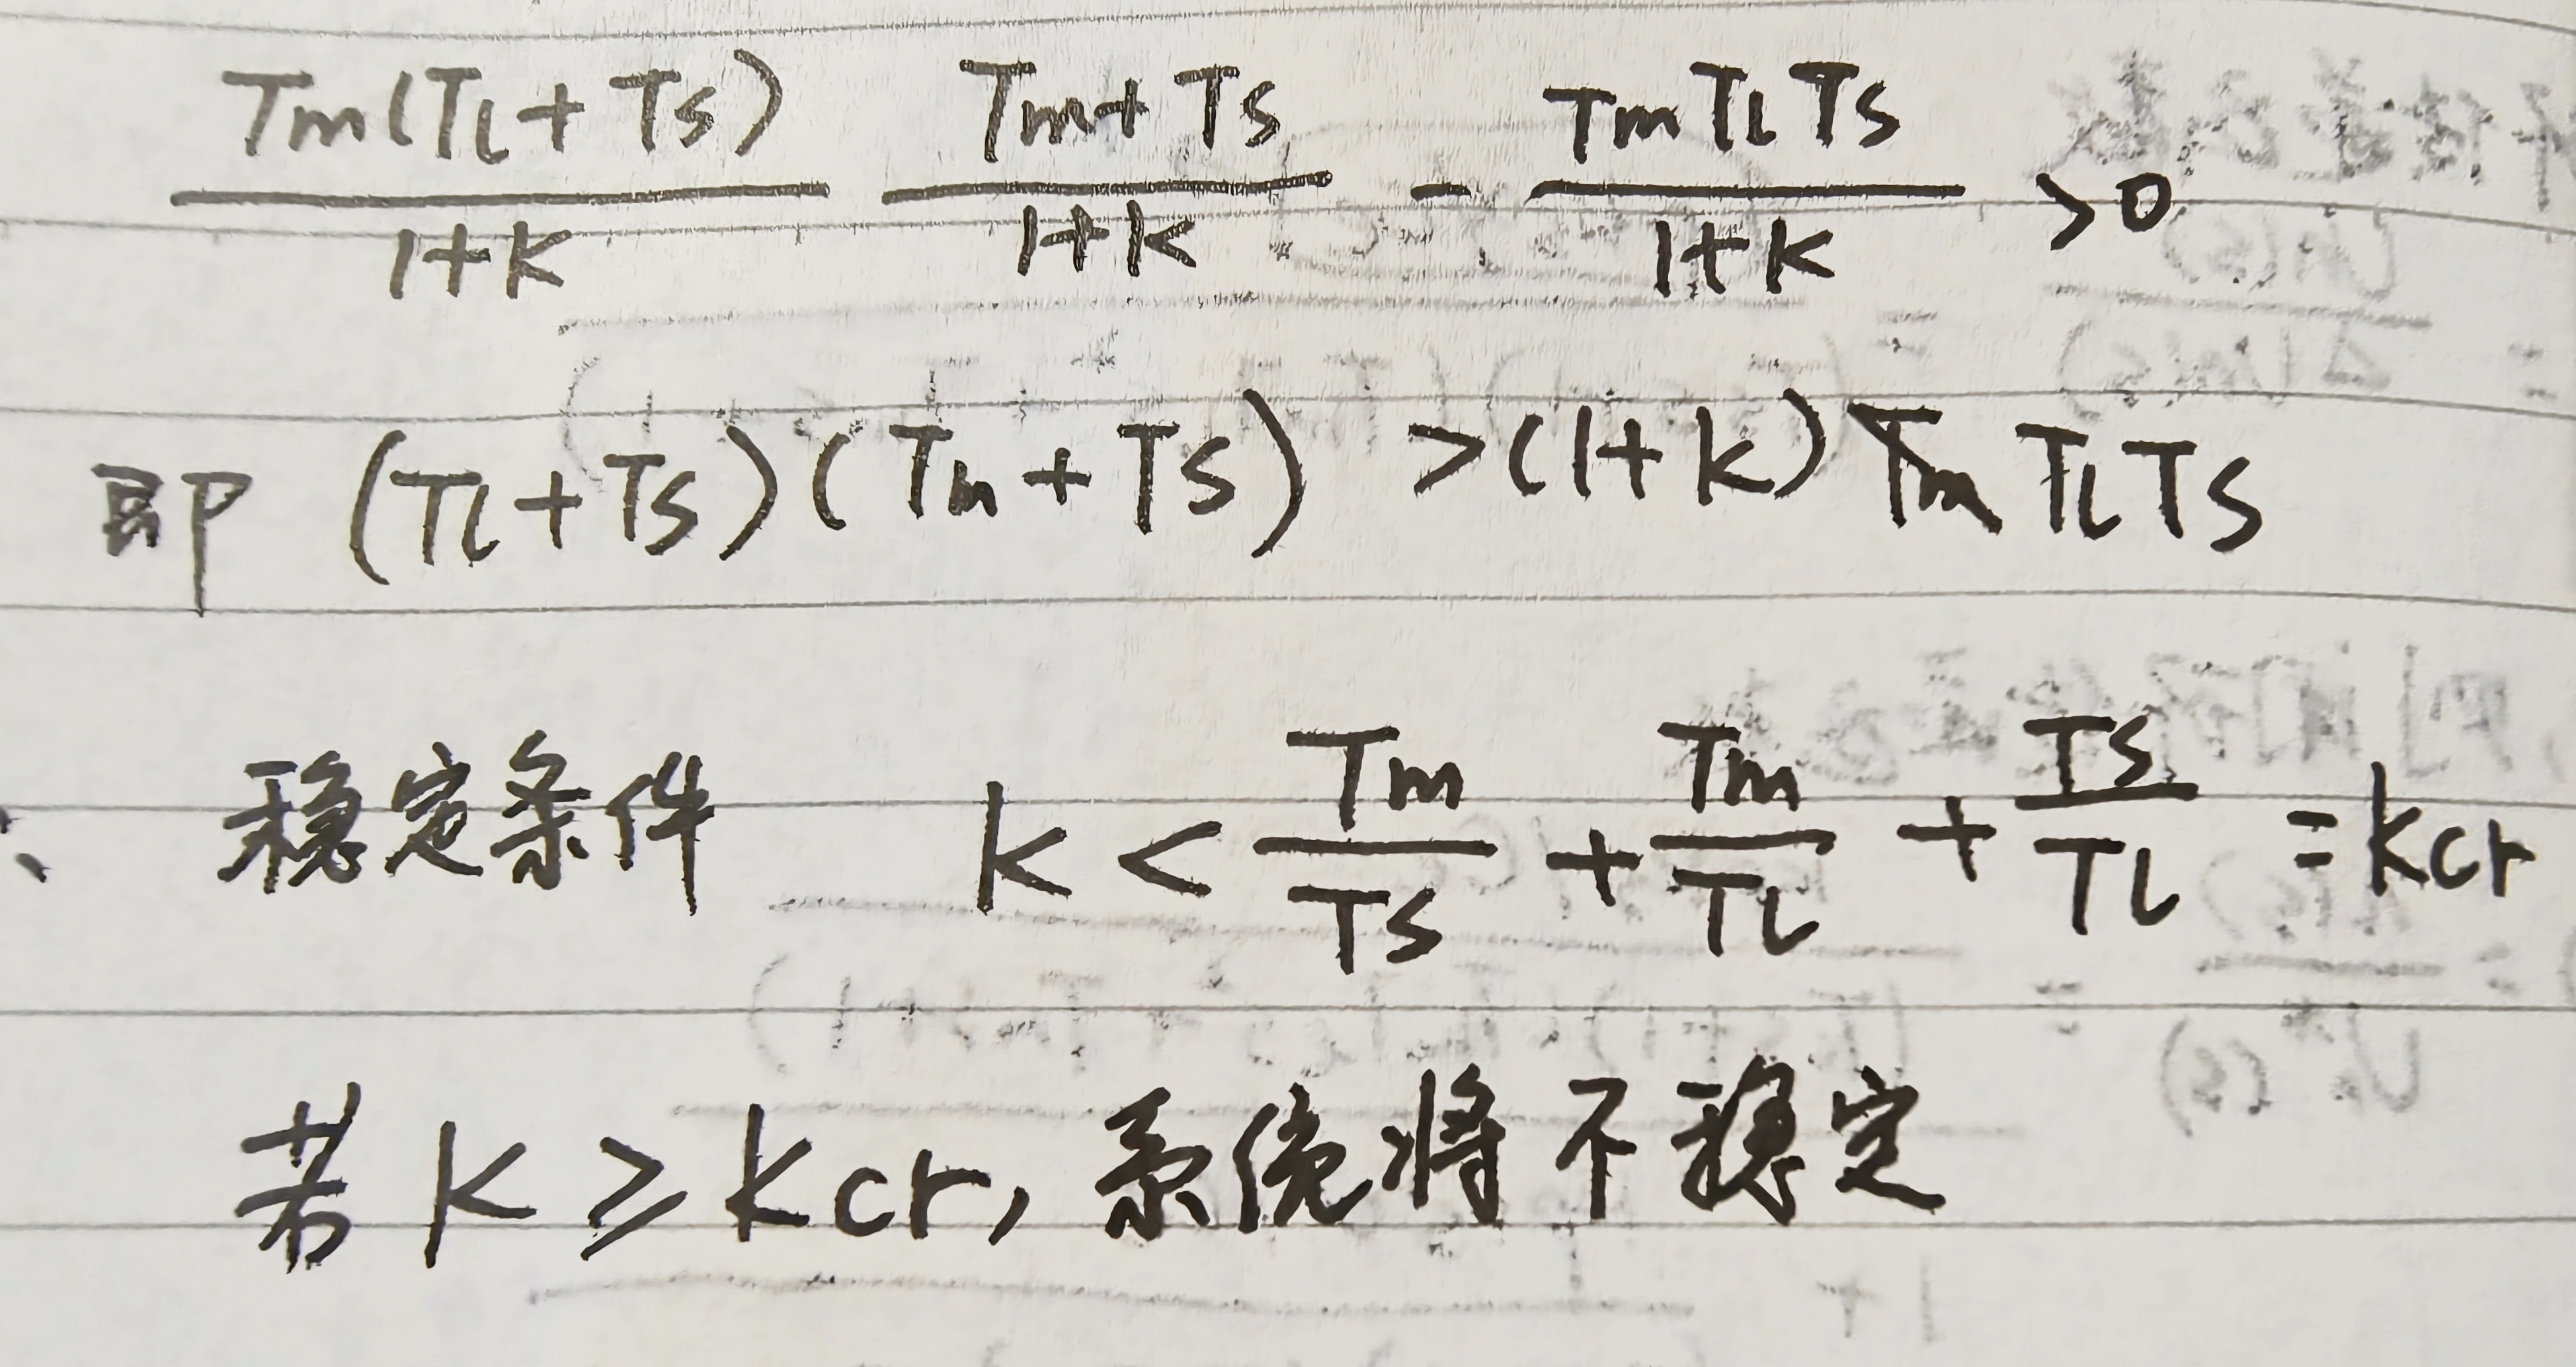 Tm(Tl+Ts)/(1+K) (Tm+Ts)/(1+K) - TmTlTs/(1+K) >0
即 (Tl+Ts)(Tm+Ts) >(1+K) TlTs
稳定条件 K < Tm/Ts + Tm/Tl + Ts/Tl = Kcr
若 K ≥ Kcr, 系统将不稳定